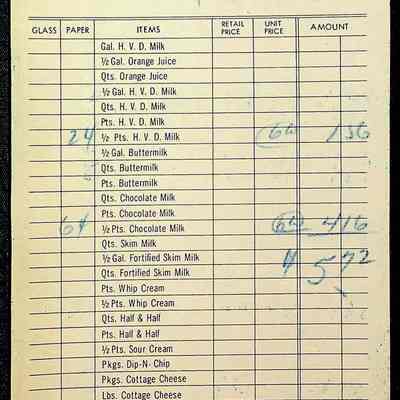 GLASS PAPER ITEMS RETAIL PRICE UNIT PRICE AMOUNT
Gal. H. V. D. Milk
½ Gal. Orange Juice
Qts. Orange Juice
½ Gal. H. V. D. Milk
Qts. H. V. D. Milk
Pts. H. V. D. Milk
24 ½ Pts. H. V. D. Milk 6½ 1 56
½ Gal. Buttermilk
Qts. Buttermilk
Pts. Buttermilk
Qts. Chocolate Milk
Pts. Chocolate Milk
64 ½ Pts. Chocolate Milk 6½ 4 16
Qts. Skim Milk
½ Gal. Fortified Skim Milk $ 5 72
Qts. Fortified Skim Milk
Pts. Whip Cream
½ Pts. Whip Cream
Qts. Half & Half
Pts. Half & Half
½ Pts. Sour Cream
Pkgs. Dip-N-Chip
Pkgs. Cottage Cheese
Lbs. Cottage Cheese